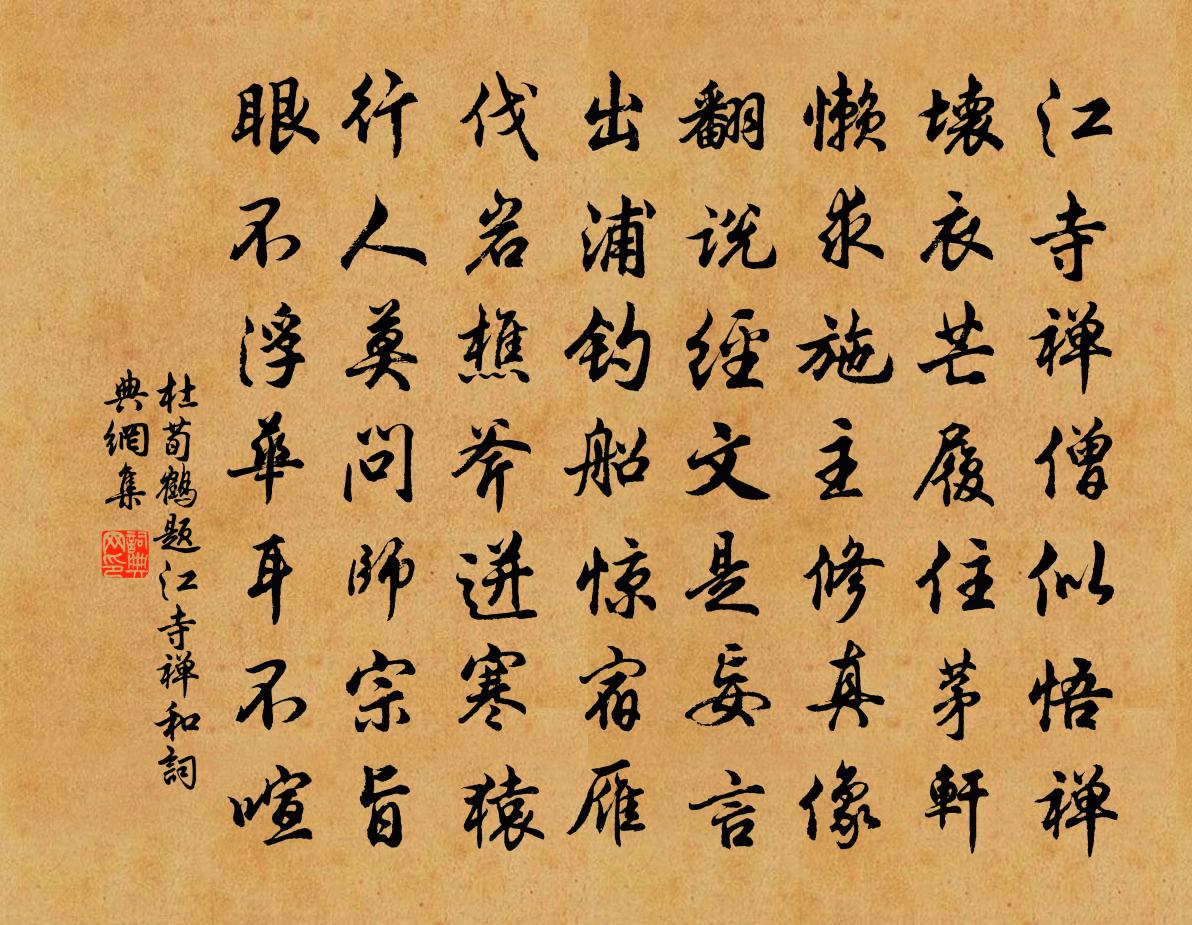 江寺禅僧似悟禅
壊衣芒履住茅軒
懒求施主修真像
翻说經文是妄言
出浦钓船惊宿雁
伐岩樵斧迸寒猿
行人莫问師宗旨
眼不浮華耳不喧
杜荀鶴题江寺禅和詞
典網集
詞典
网印